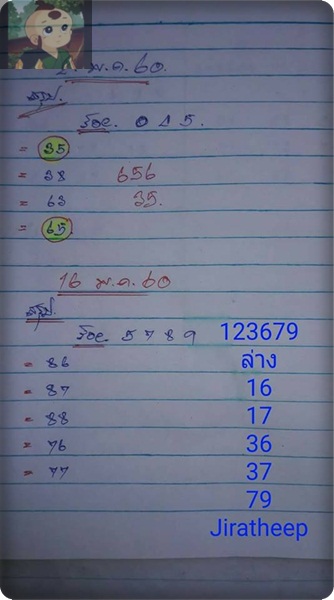 2. พ.ค. 60.
สรุป.
ร้อย. 0 4 5.
= 35
= 38 656
= 63 35.
= 65
16 พ.ค. 60
สรุป.
ร้อย. 5 7 8 9 123679
= 86 ล่าง
= 87 16
= 88 17
= 76 36
= 77 37
79
Jiratheep